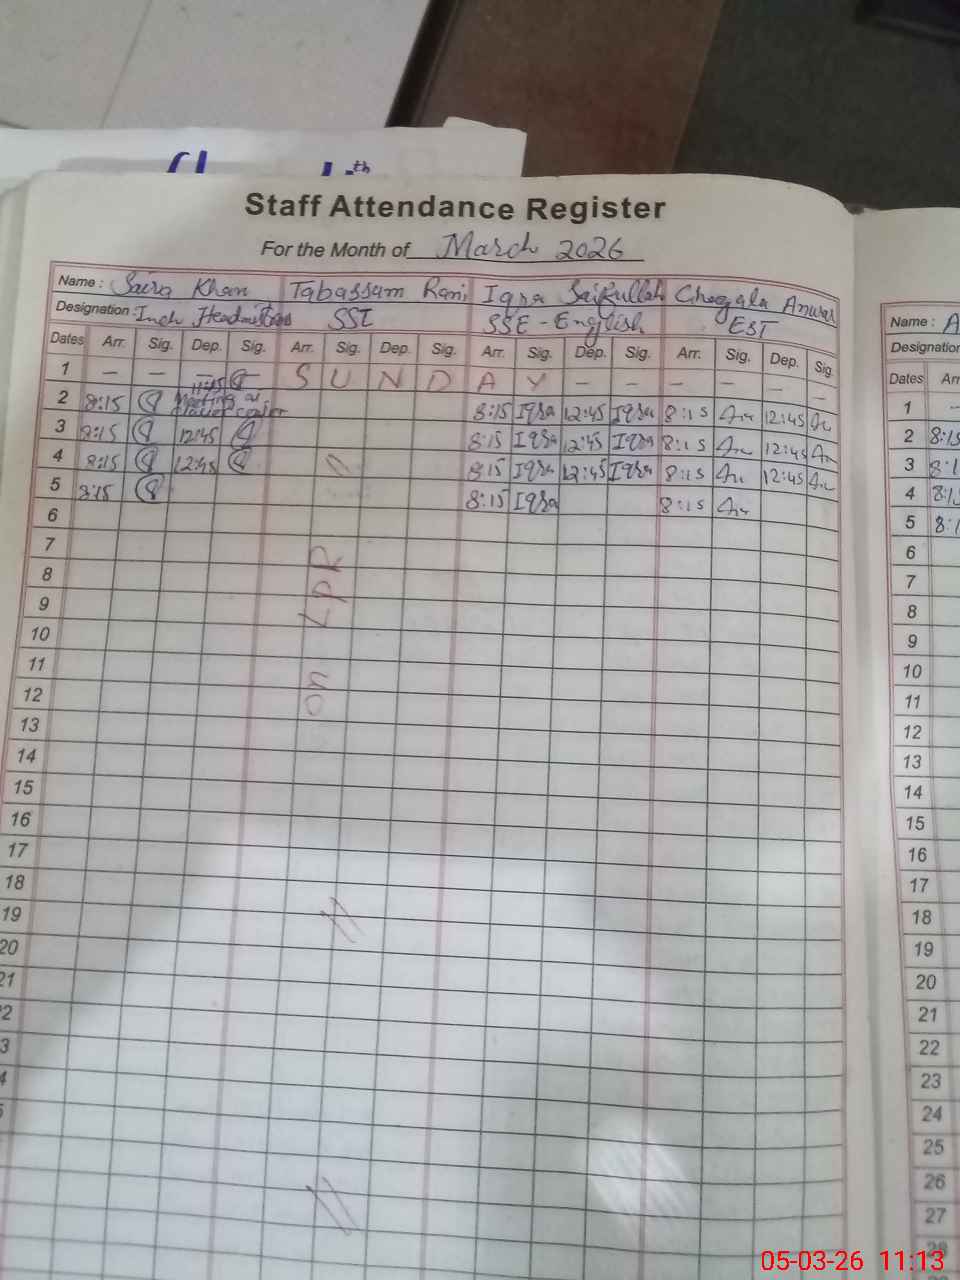 th
Staff Attendance Register
For the Month of March 2026
Name: Saira Khan Tabassum Rani Iqra Saifullah Ghazala Anwar
Designation: Inch Headmistress SSE SSE - English EST
Dates Arr. Sig. Dep. Sig. Arr. Sig. Dep. Sig. Arr. Sig. Dep. Sig. Arr. Sig. Dep. Sig.
1 — — — — S U N D A Y — — — — — —
2 8:15 11:45 Meeting at center 8:15 Iqra 12:45 Iqra 8:15 An 12:45 An
3 8:15 12:45 8:15 Iqra 12:45 Iqra 8:15 An 12:45 An
4 8:15 12:45 8:15 Iqra 12:45 Iqra 8:15 An 12:45 An
5 8:15 8:15 Iqra 8:15 An
6
7
8
9
10
11
12
13
14
15
16
17
18
19
20
21
2
3
4
5
Name: A
Designation
Dates Arr
1 –
2 8:15
3 8:1
4 8:1
5 8:1
6
7
8
9
10
11
12
13
14
15
16
17
18
19
20
21
22
23
24
25
26
27
28
05-03-26 11:13